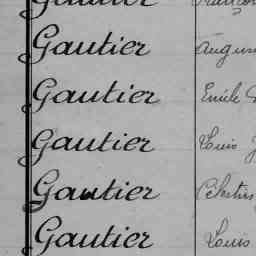 Gautier
Gautier Augus
Gautier Emile
Gautier Louis J
Gautier Célestin
Gautier Louis